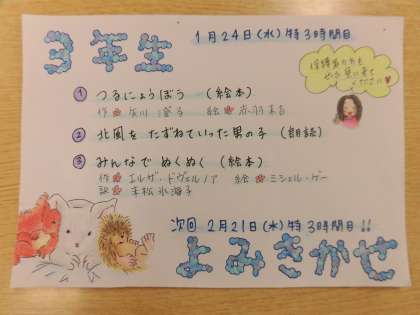 3年生
1月24日(水)特3時間目
保護者の方も
ぜひ見に来て
ください♥
① つるにょうぼう (絵本)
作 矢川 澄子 絵 赤羽末吉
② 北風をたずねていった男の子 (朗読)
③ みんなで ぬくぬく (絵本)
作 エルザ・ドヴェルノア 絵 ミシェル・ゲー
訳 末松氷海子
次回 2月21日(水)特3時間目!!
よみきかせ